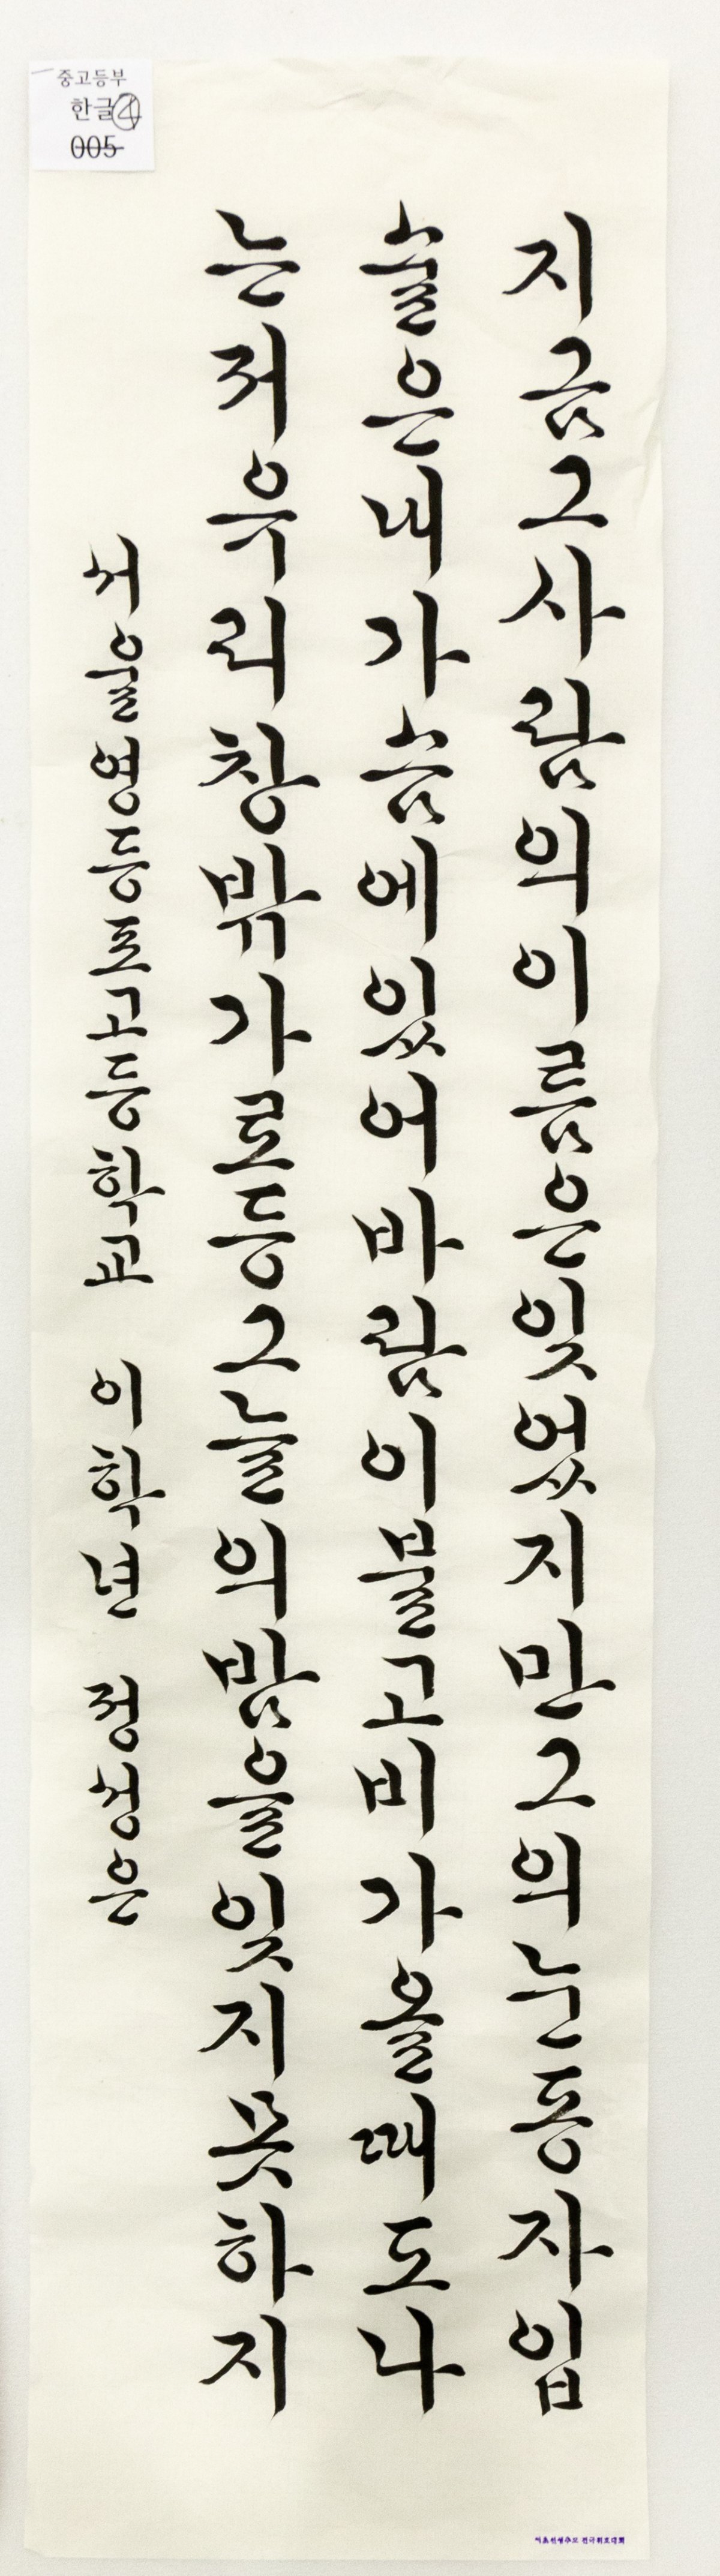 중고등부
한글④
005
지금그사람의이름은잊었지만그의눈동자입
술은내가슴에있어바람이불고비가올때도나
는저유리창밖가로등그늘의밤을잊지못하지
서울영등포고등학교 이학년 정성은